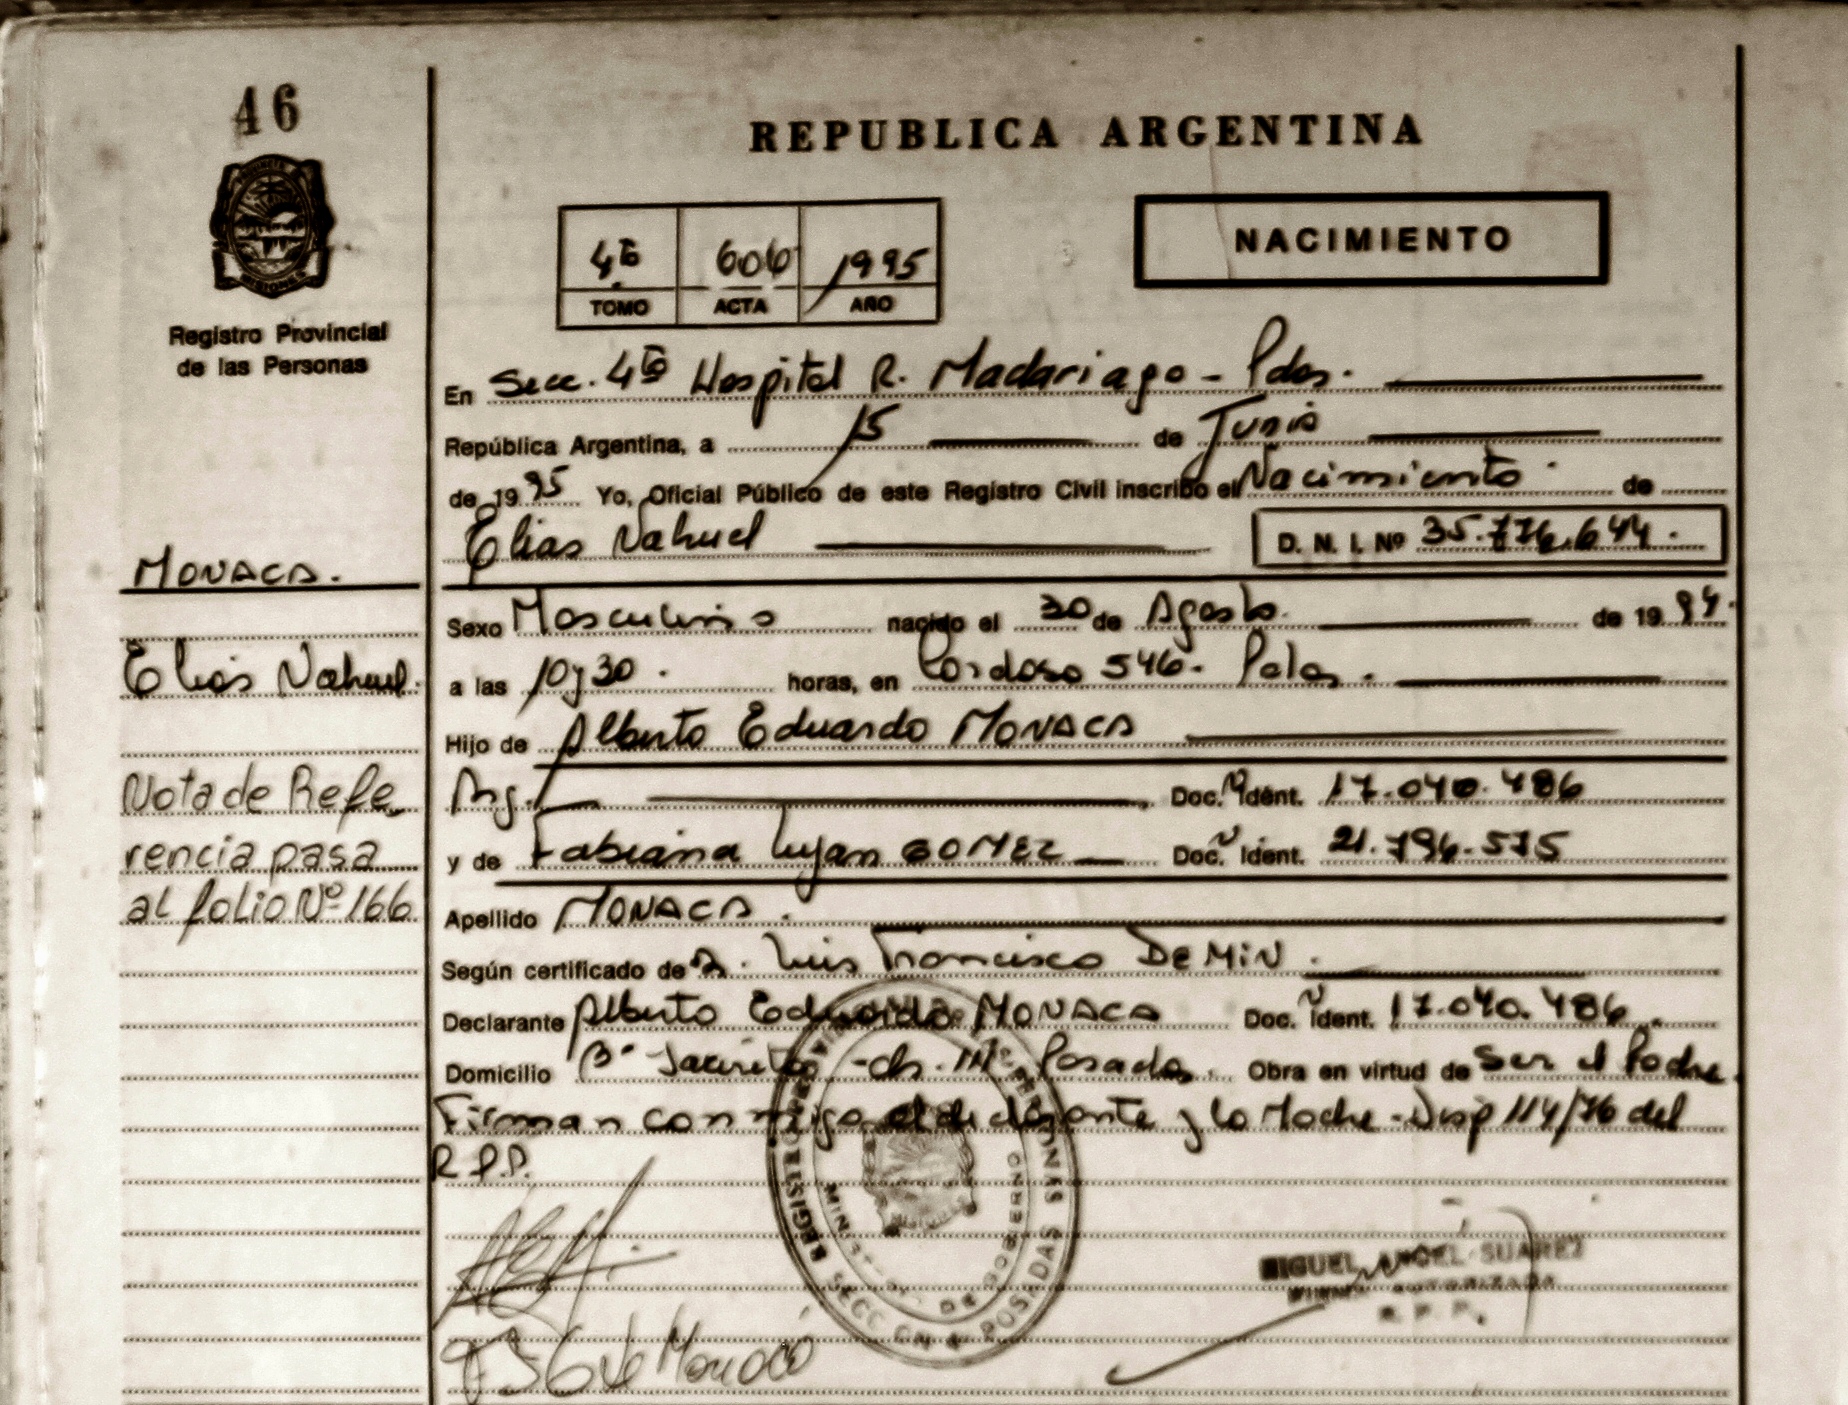 46
REPUBLICA ARGENTINA
PROVINCIA DE
MISIONES
Registro Provincial
de las Personas
4to 606 1995
TOMO ACTA AÑO
NACIMIENTO
En Secc. 4to Hospital R. Madariaga - Pdas.
República Argentina, a 15 de Junio
de 1995 Yo, Oficial Público de este Registro Civil inscribo el Nacimiento de
Elias Nahuel D. N. I. Nº 35.776.644.
MONACA.
Elias Nahuel.
Nota de Refe
rencia pasa
al folio Nº 166
Sexo Masculino nacido el 30 de Agosto de 1994.
a las 10 y 30. horas, en Cordoso 546- Pdas.
Hijo de Alberto Eduardo MONACA
Arg. Doc. Ident. 17.040.486
y de Fabiana Lujan GOMEZ Doc. Ident. 21.796.575
Apellido MONACA.
Según certificado de Dr. Luis Francisco DEMIN.
Declarante Alberto Eduardo MONACA Doc. Ident. 17.040.486.
Domicilio Bº -ch. Posadas. Obra en virtud de Ser el Padre.
Firman conmigo el y la Madre - Disp 114/76 del
R.P.P.
REGISTRO
MINISTERIO DE GOBIERNO
SECCION 4 POSADAS
MIGUEL ANGEL SUAREZ
FIRMA AUTORIZADA
R. P. P.